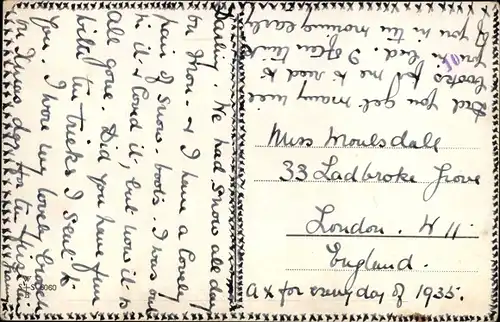 Darling. We had snow all day
on Mon. & I have a lovely
pair of snow boots. I was out
in it & loved it, but now it is
all gone. Did you have fun
with the tricks I sent to
you. I wore my lovely broach
on Xmas day for the first
time
Did you get many nice
books for me to read to
you in bed. I often think
of you in the morning early
Miss Moulsdale
33 Ladbroke Grove
London. W 11.
England.
a x for every day of 1935.
6060